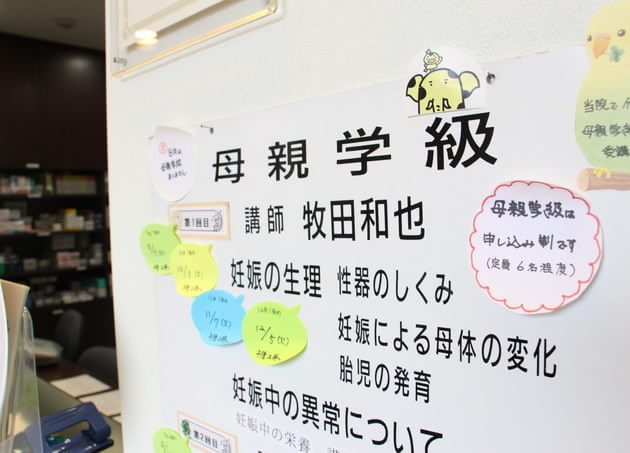 母親学級
母親学級は
申し込み制です
(定員6名程度)
当院で
母親学級
受講
母親学級
ありません
第1回目
講師 牧田和也
妊娠の生理 性器のしくみ
妊娠による母体の変化
胎児の発育
11/7(火)
12/5(火)
妊娠中の異常について
第2回目
妊娠中の栄養